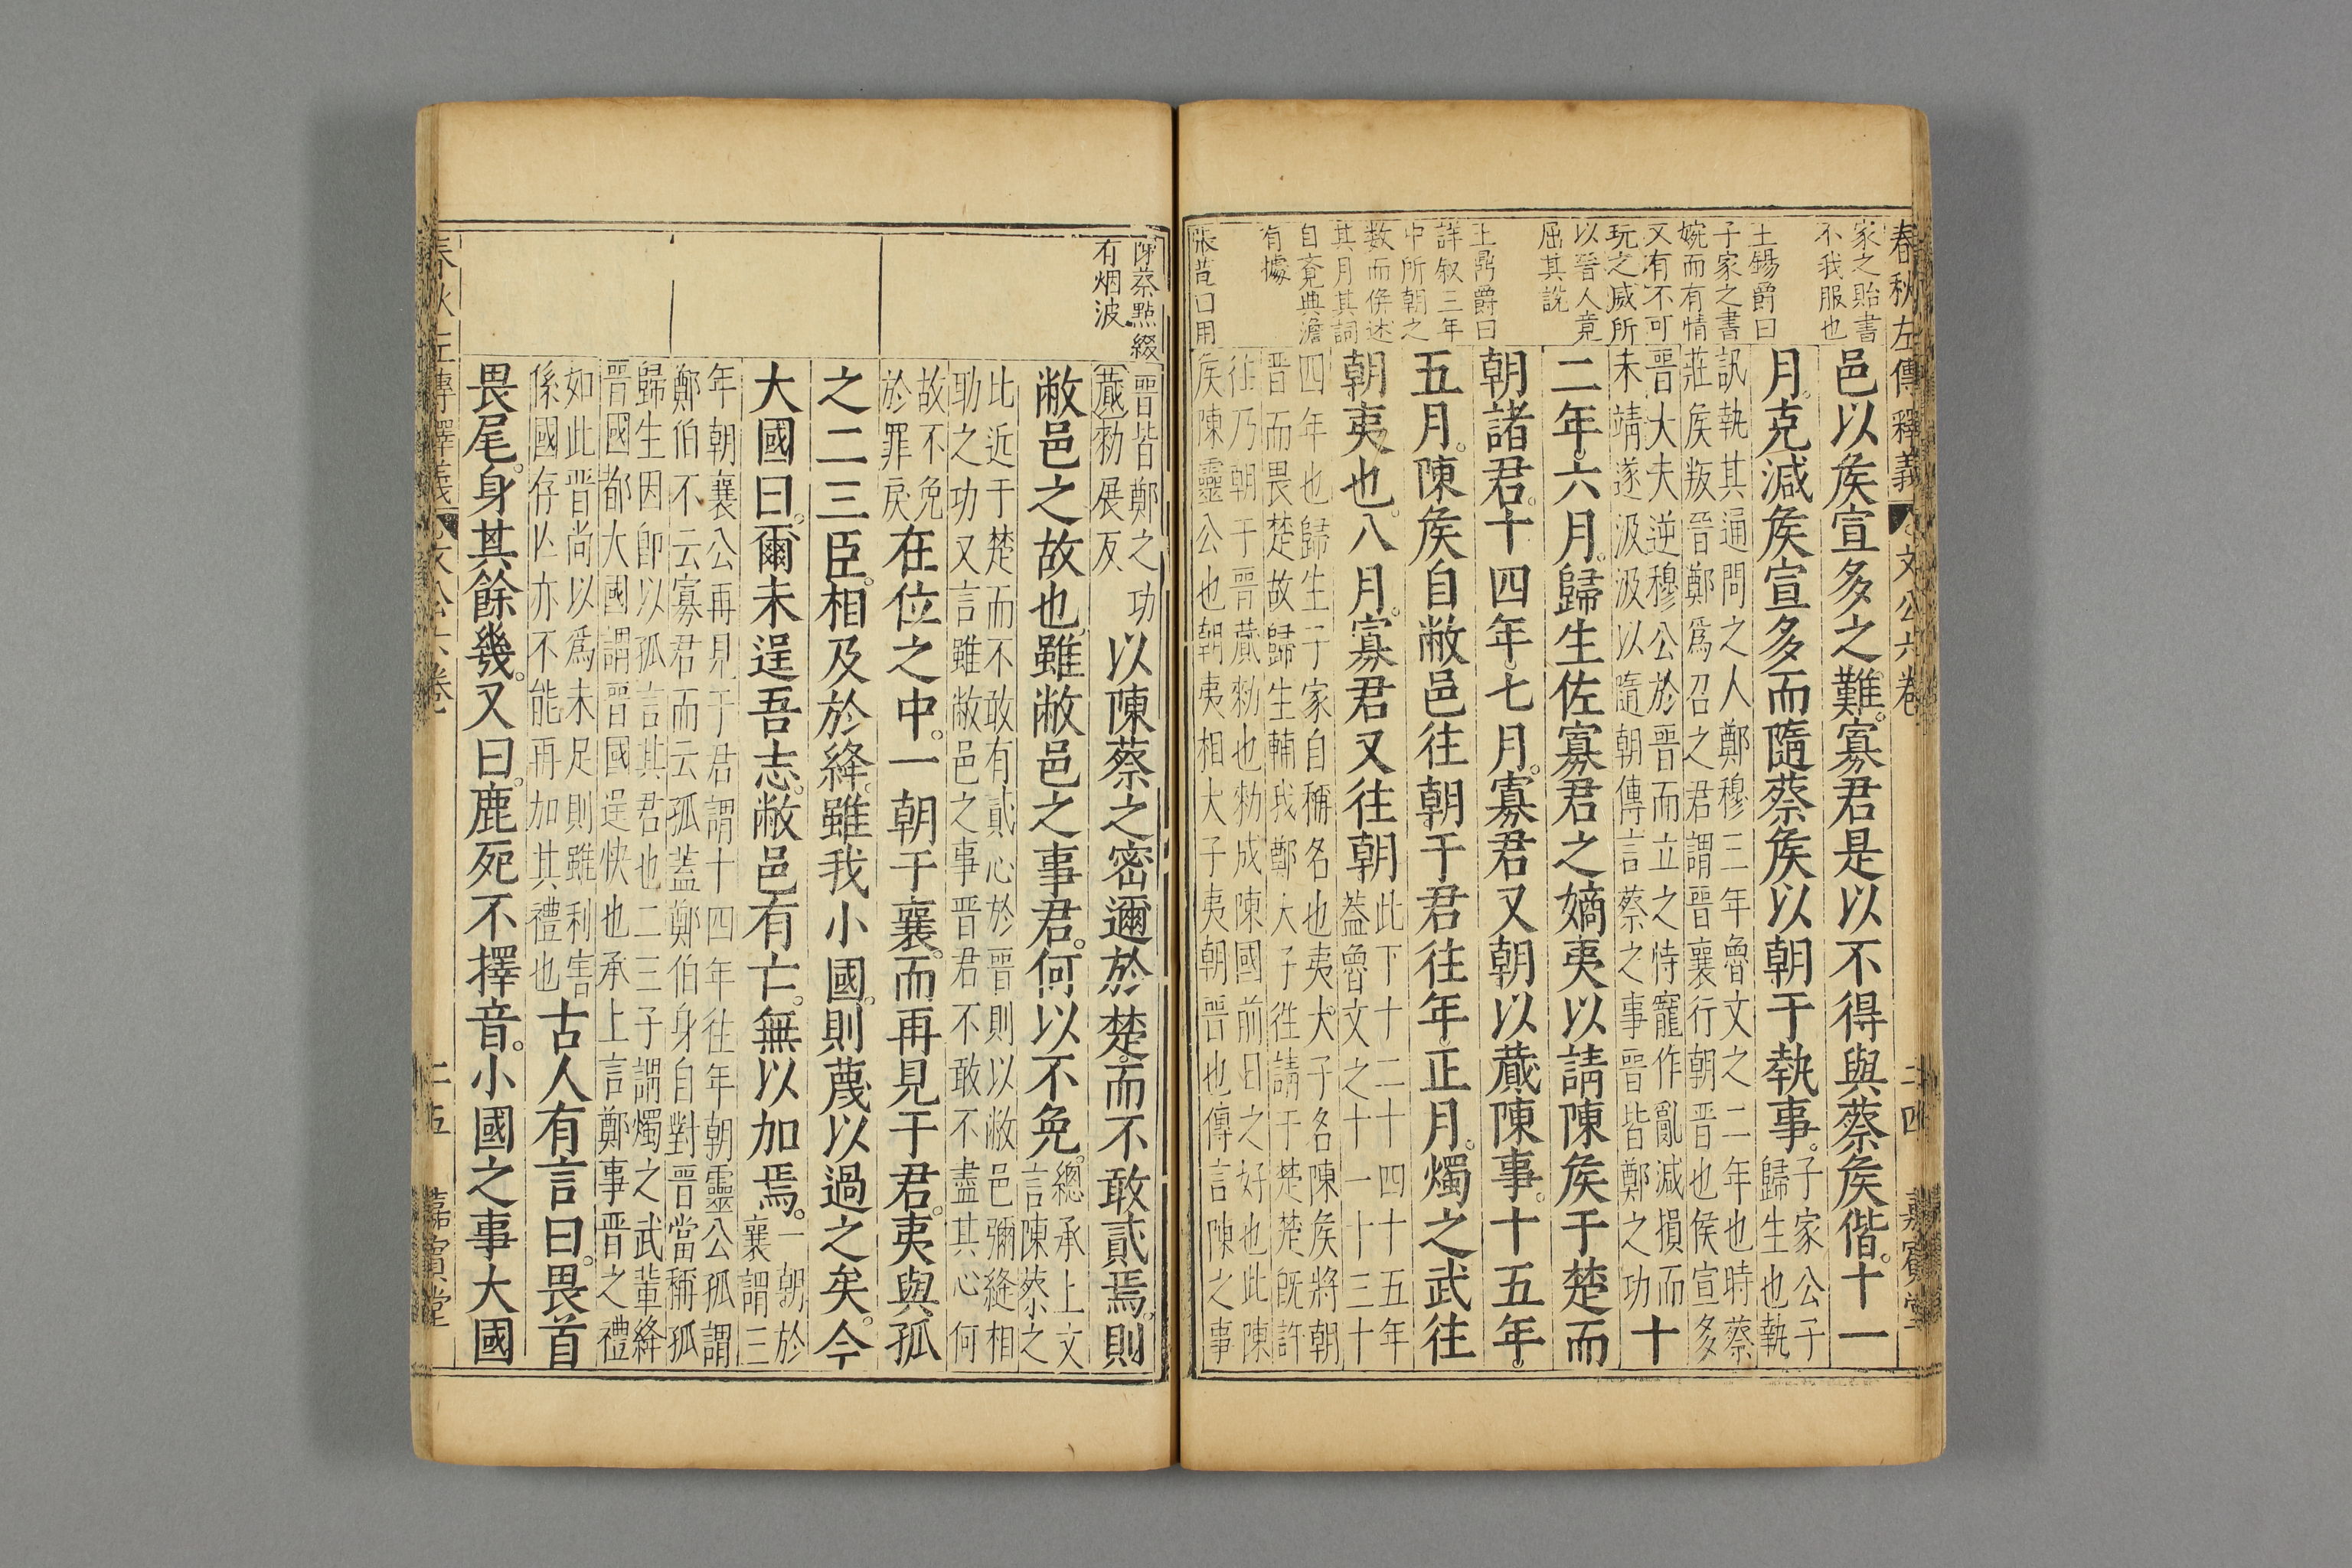 春秋左傳釋義 文公六卷 二四 嘉賓堂
家之貽書
不我服也
王錫爵曰
子家之書
婉而有情
又有不可
玩之威所
以晉人竟
屈其說
王鼎爵曰
詳叙三年
中所朝之
数而倂述
其月其詞
自竟典澹
有據
張萱曰用
邑以矦宣多之難寡君是以不得與蔡矦偕十一
月克減矦宣多而隨蔡矦以朝于執事子家公子
歸生也執
訊執其通問之人鄭穆三年魯文之二年也時蔡
莊矦叛晉鄭爲召之君謂晉襄行朝晋也侯宣多
晋大夫逆穆公於晋而立之恃寵作亂減損而
未靖遂汲汲以隨朝傳言蔡之事晋皆鄭之功十
二年六月歸生佐寡君之嫡夷以請陳矦于楚而
朝諸君十四年七月寡君又朝以蕆陳事十五年
五月陳矦自敝邑往朝于君往年正月燭之武往
朝夷也八月寡君又往朝此下十二十四十五年
葢魯文之十一十三十
四年也歸生子家自稱名也夷大子名陳矦將朝
晋而畏楚故歸生輔我鄭大子往請于楚楚旣許
徃乃朝于晋蕆勑也勑成陳國前日之好也此陳
矦陳靈公也朝夷相大子夷朝晋也傳言陳之事
陳蔡點綴
有烟波
晋皆鄭之功
蕆勑展反以陳蔡之密邇於楚而不敢貳焉則
敝邑之故也雖敝邑之事君何以不免總承上文
言陳蔡之
比近于楚而不敢有貳心於晋則以敝邑彌縫相
助之功又言雖敝邑之事晋君不敢不盡其心何
故不免
於罪戾在位之中一朝于襄而再見于君夷與孤
之二三臣相及於絳雖我小國則蔑以過之矣今
大國曰爾未逞吾志敝邑有亡無以加焉一朝於
襄謂三
年朝襄公再見于君謂十四年往年朝靈公孤謂
鄭伯不云寡君而云孤葢鄭伯身自對晋當稱孤
歸生因卽以孤言其君也二三子謂燭之武輩絳
晋國都大國謂晋國逞快也承上言鄭事晋之禮
如此晋尚以爲未足則雖利害
係國存亡亦不能再加其禮也古人有言曰畏首
畏尾身其餘幾又曰鹿死不擇音小國之事大國
春秋左傳釋義 文公六卷 二五 嘉賓堂